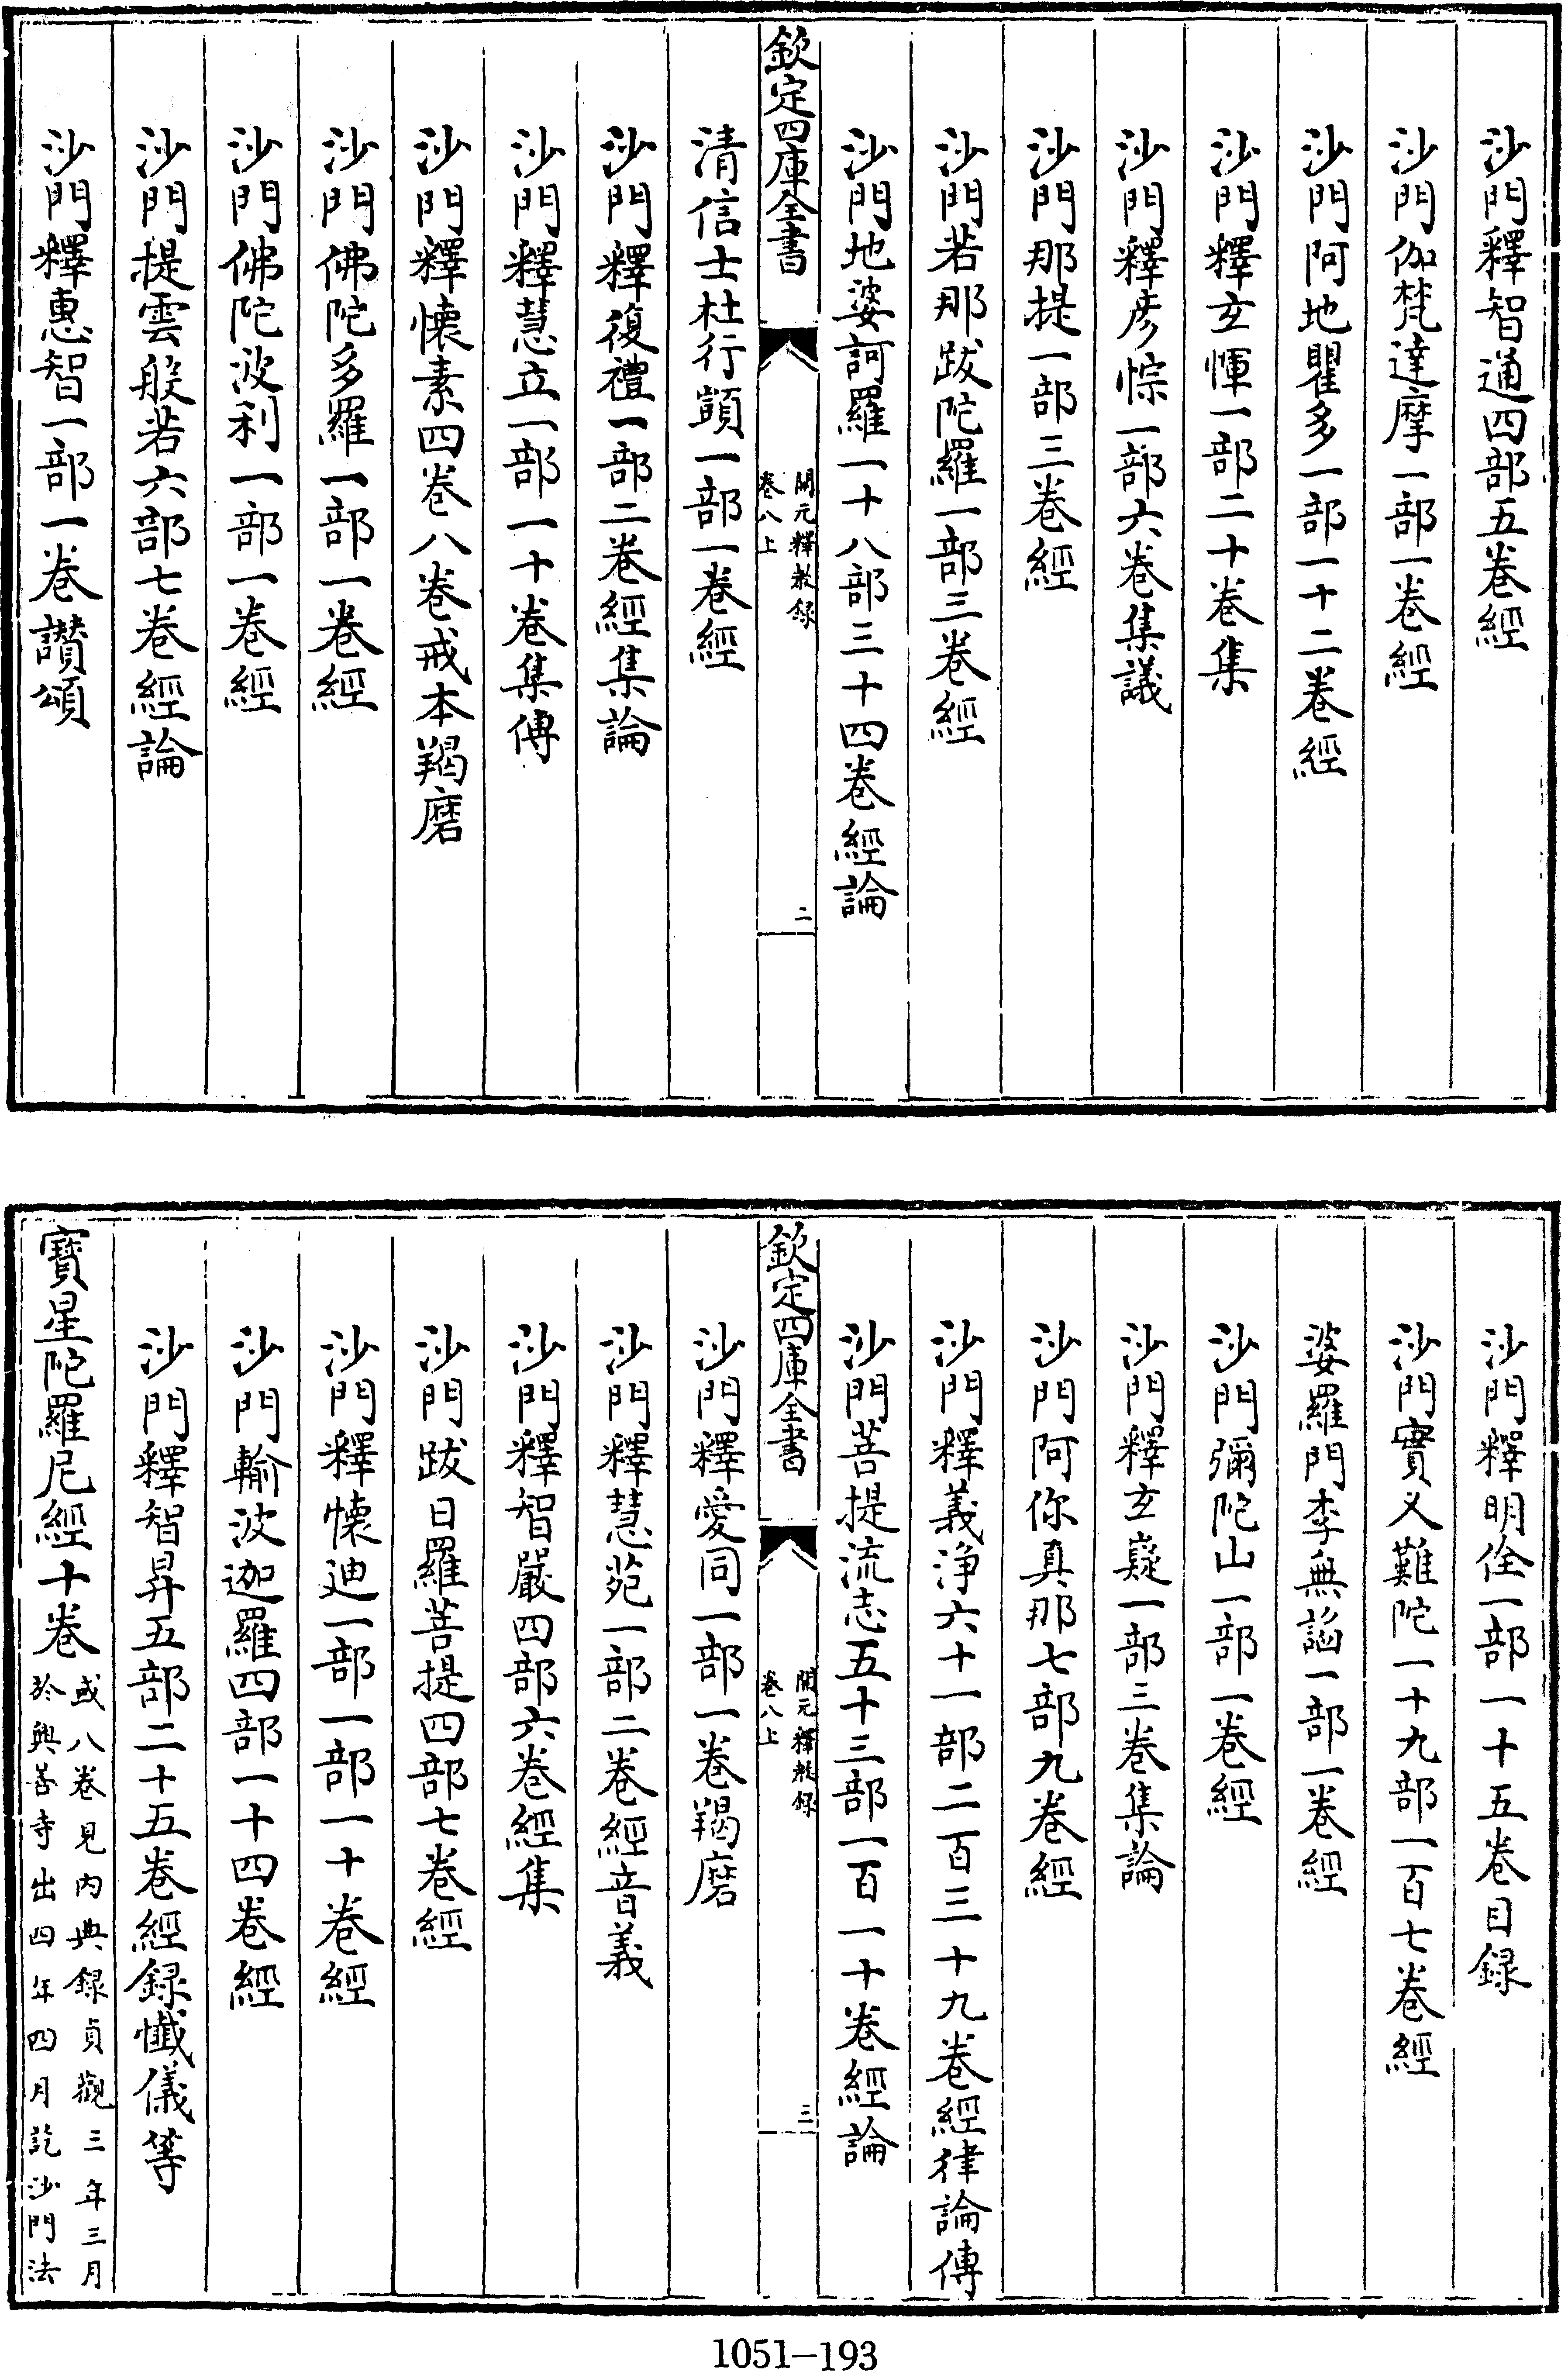 沙門釋智通四部五卷經
沙門伽梵達摩一部一卷經
沙門阿地瞿多一部一十二卷經
沙門釋玄惲一部二十卷集
沙門釋彦悰一部六卷集議
沙門那提一部三卷經
沙門若那跋陀羅一部三卷經
沙門地婆訶羅一十八部三十四卷經論
欽定四庫全書
開元釋教録
卷八上
二
清信士杜行顗一部一卷經
沙門釋復禮一部二卷經集論
沙門釋慧立一部一十卷集傳
沙門釋懐素四卷八卷戒本羯磨
沙門佛陀多羅一部一卷經
沙門佛陀波利一部一卷經
沙門提雲般若六部七卷經論
沙門釋惠智一部一卷讃頌
沙門釋明佺一部一十五卷目録
沙門實叉難陀一十九部一百七卷經
婆羅門李無諂一部一卷經
沙門彌陀山一部一卷經
沙門釋玄嶷一部三卷集論
沙門阿你真那七部九卷經
沙門釋義淨六十一部二百三十九卷經律論傳
沙門菩提流志五十三部一百一十卷經論
欽定四庫全書
開元釋教録
卷八上
三
沙門釋愛同一部一卷羯磨
沙門釋慧苑一部二卷經音義
沙門釋智嚴四部六卷經集
沙門跋日羅菩提四部七卷經
沙門釋懐迪一部一部一十卷經
沙門輸波迦羅四部一十四卷經
沙門釋智昇五部二十五卷經録懺儀等
寶星陀羅尼經十卷
或八卷見内典録貞觀三年三月
於興善寺出四年四月訖沙門法
1051-193